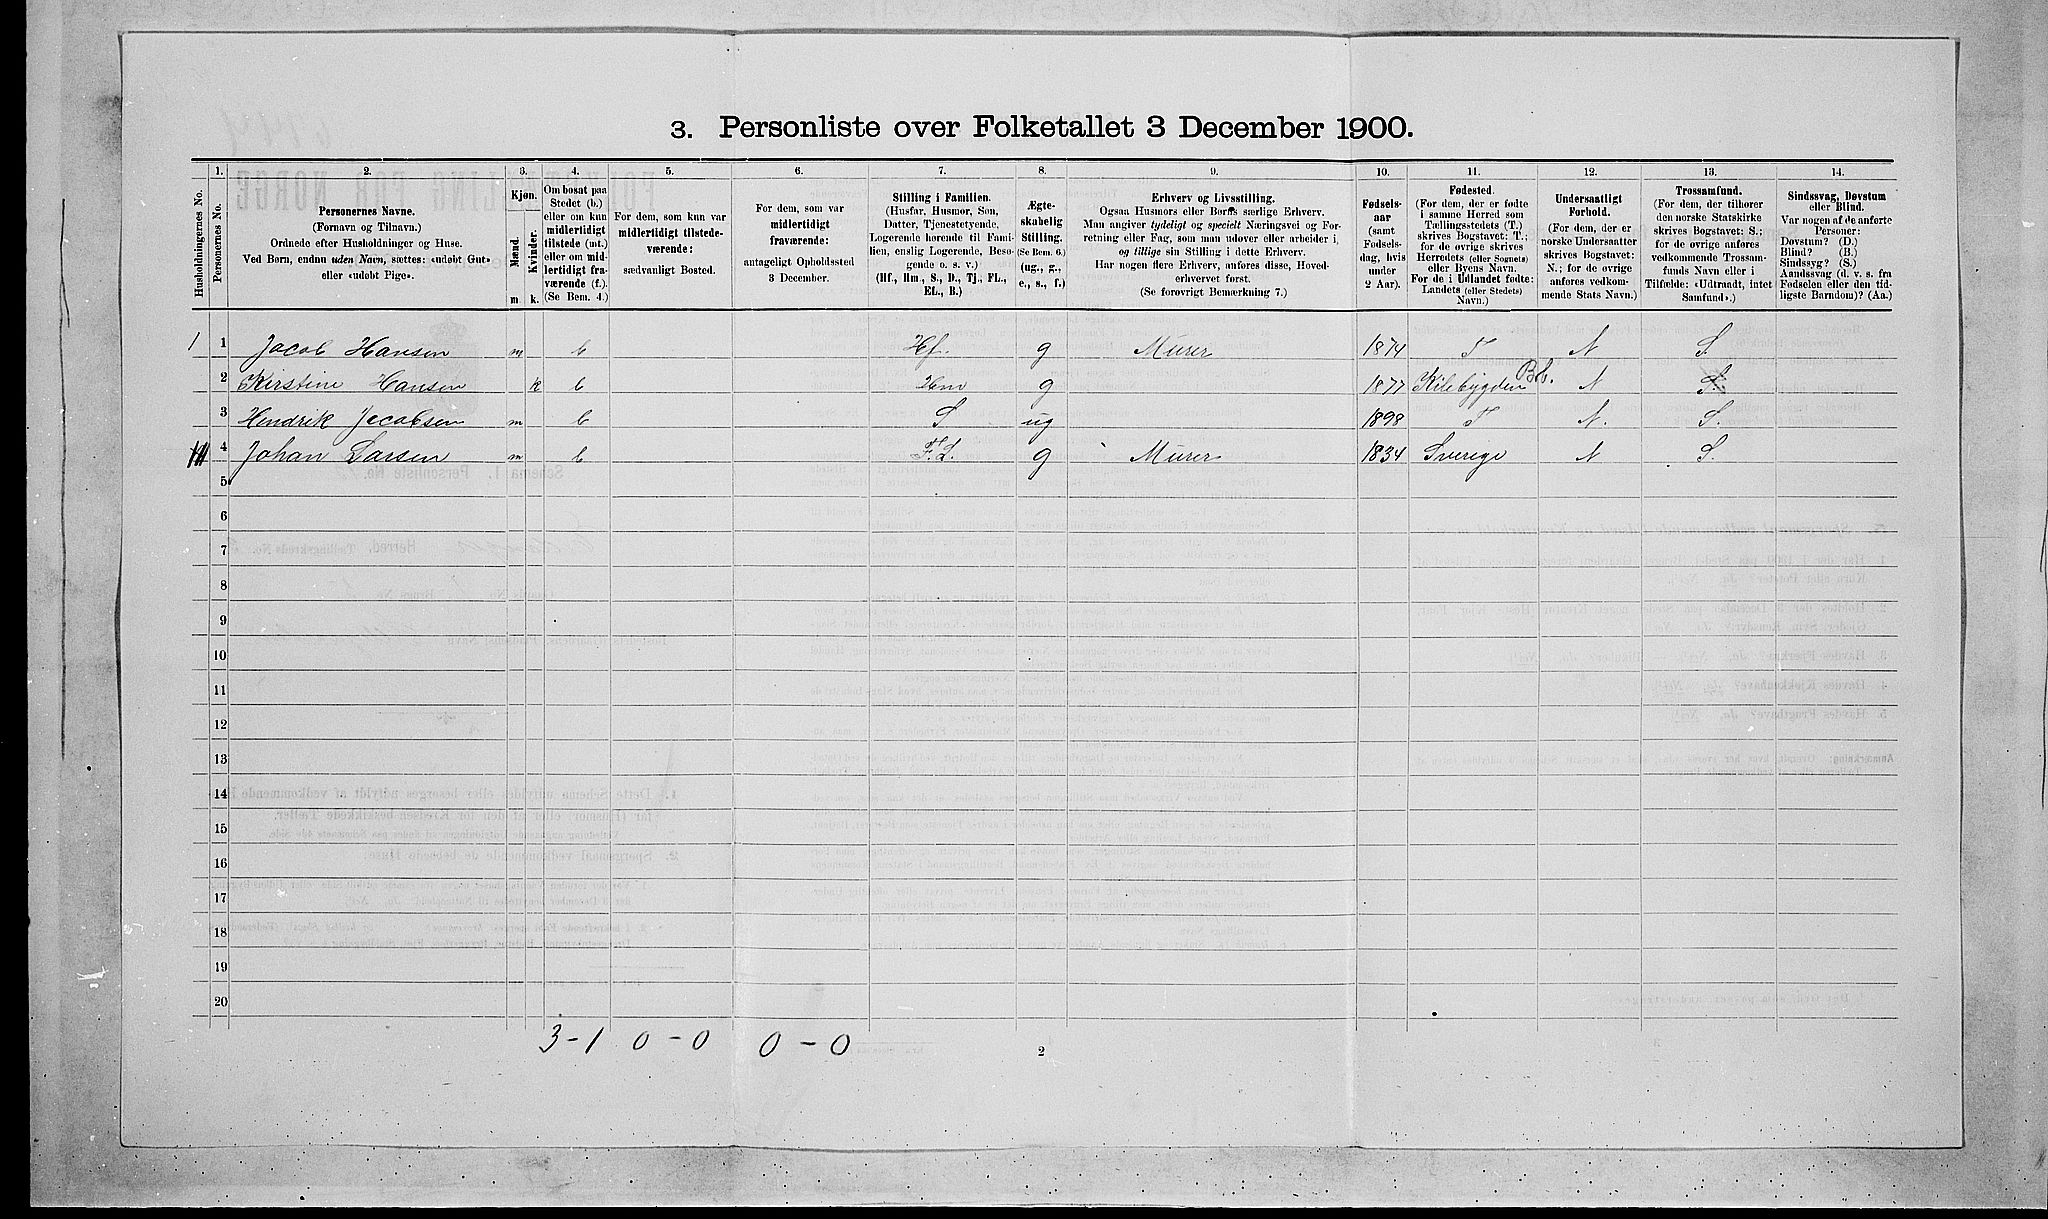 3. Personliste over Folketallet 3 December 1900.
Husholdningernes No.
1.
Personernes No.
2.
Personernes Navne.
(Fornavn og Tilnavn.)
Ordnede efter Husholdninger og Huse.
Ved Børn, endnu uden Navn, sættes: «udøbt Gut»
eller «udøbt Pige».
3.
Kjøn.
Mænd.
Kvinder.
m
k.
4.
Om bosat paa
Stedet (b.)
eller om kun
midlertidigt
tilstede (mt.)
eller om mid-
lertidigt fra-
værende (f.).
(Se Bem. 4.)
5.
For dem, som kun var
midlertidigt tilstede-
værende:
sædvanligt Bosted.
6.
For dem, som var
midlertidigt
fraværende:
antageligt Opholdssted
3 December.
7.
Stilling i Familien.
(Husfar, Husmor, Søn,
Datter, Tjenestetyende,
Logerende hørende til Fami-
lien, enslig Logerende, Besø-
gende o. s. v.)
(Hf., Hm., S., D., Tj., FL.,
EL., B.)
8.
Ægte-
skabelig
Stilling.
(Se Bem. 6.)
(ug., g.,
e., s., f.)
9.
Erhverv og Livsstilling.
Ogsaa Husmors eller Børns særlige Erhverv.
Man angiver tydeligt og specielt Næringsvei og For-
retning eller Fag, som man udover eller arbeider i,
og tillige sin Stilling i dette Erhverv.
Har nogen flere Erhverv, anføres disse, Hoved-
erhvervet først.
(Se forøvrigt Bemærkning 7.)
10.
Fødsels-
aar
(samt
Fødsels-
dag, hvis
under
2 Aar).
11.
Fødested.
(For dem, der er fødte
i samme Herred som
Tællingsstedets (T.)
skrives Bogstavet: T.;
for de øvrige skrives
Herredets (eller Sognets)
eller Byens Navn.
For de i Udlandet fødte:
Landets (eller Stedets)
Navn.)
12.
Undersaatligt
Forhold.
(For dem, der er
norske Undersaatter
skrives Bogstavet:
N.; for de øvrige
anføres vedkom-
mende Stats Navn.)
13.
Trossamfund.
(For dem, der tilhører
den norske Statskirke
skrives Bogstavet: S.;
for de øvrige anføres
vedkommende Trossam-
funds Navn eller i
Tilfælde: «Udtraadt, intet
Samfund».)
14.
Sindssvag, Døvstum
eller Blind.
Var nogen af de anførte
Personer:
Døvstum? (D.)
Blind? (B.)
Sindssyg? (S.)
Aandssvag (d. v. s. fra
Fødselen eller den tid-
ligste Barndom)? (Aa.)
1 1 Jacob Hansen m b Hf. g Murer 1874 T N S.
2 Kirstine Hansen k b Hm g 1877 Kilebygden Bb. N S.
3 Hendrik Jacobsen m b S ug 1898 T N. S.
4 Johan Larsen m b F.L. g Murer 1834 Sverige N S.
5
6
7
8
9
10
11
12
13
14
15
16
17
18
19
20
3-1 0-0 0-0
2